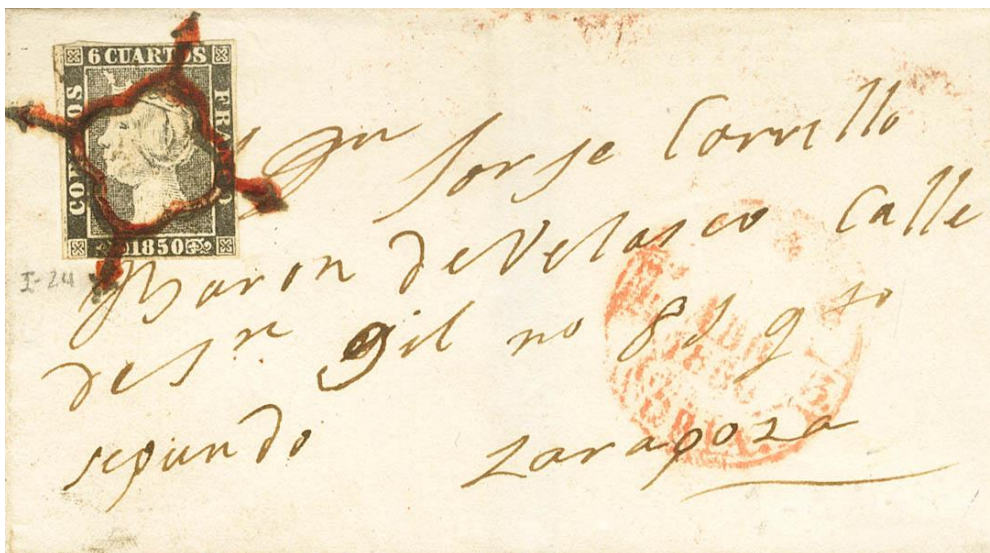 6 CUARTOS
CORREOS
FRANCO
1850
I-24
Sr Dn Jorje Carrillo
Baron de Velasco Calle
de Sn Gil no 81 qto
segundo Zaragoza